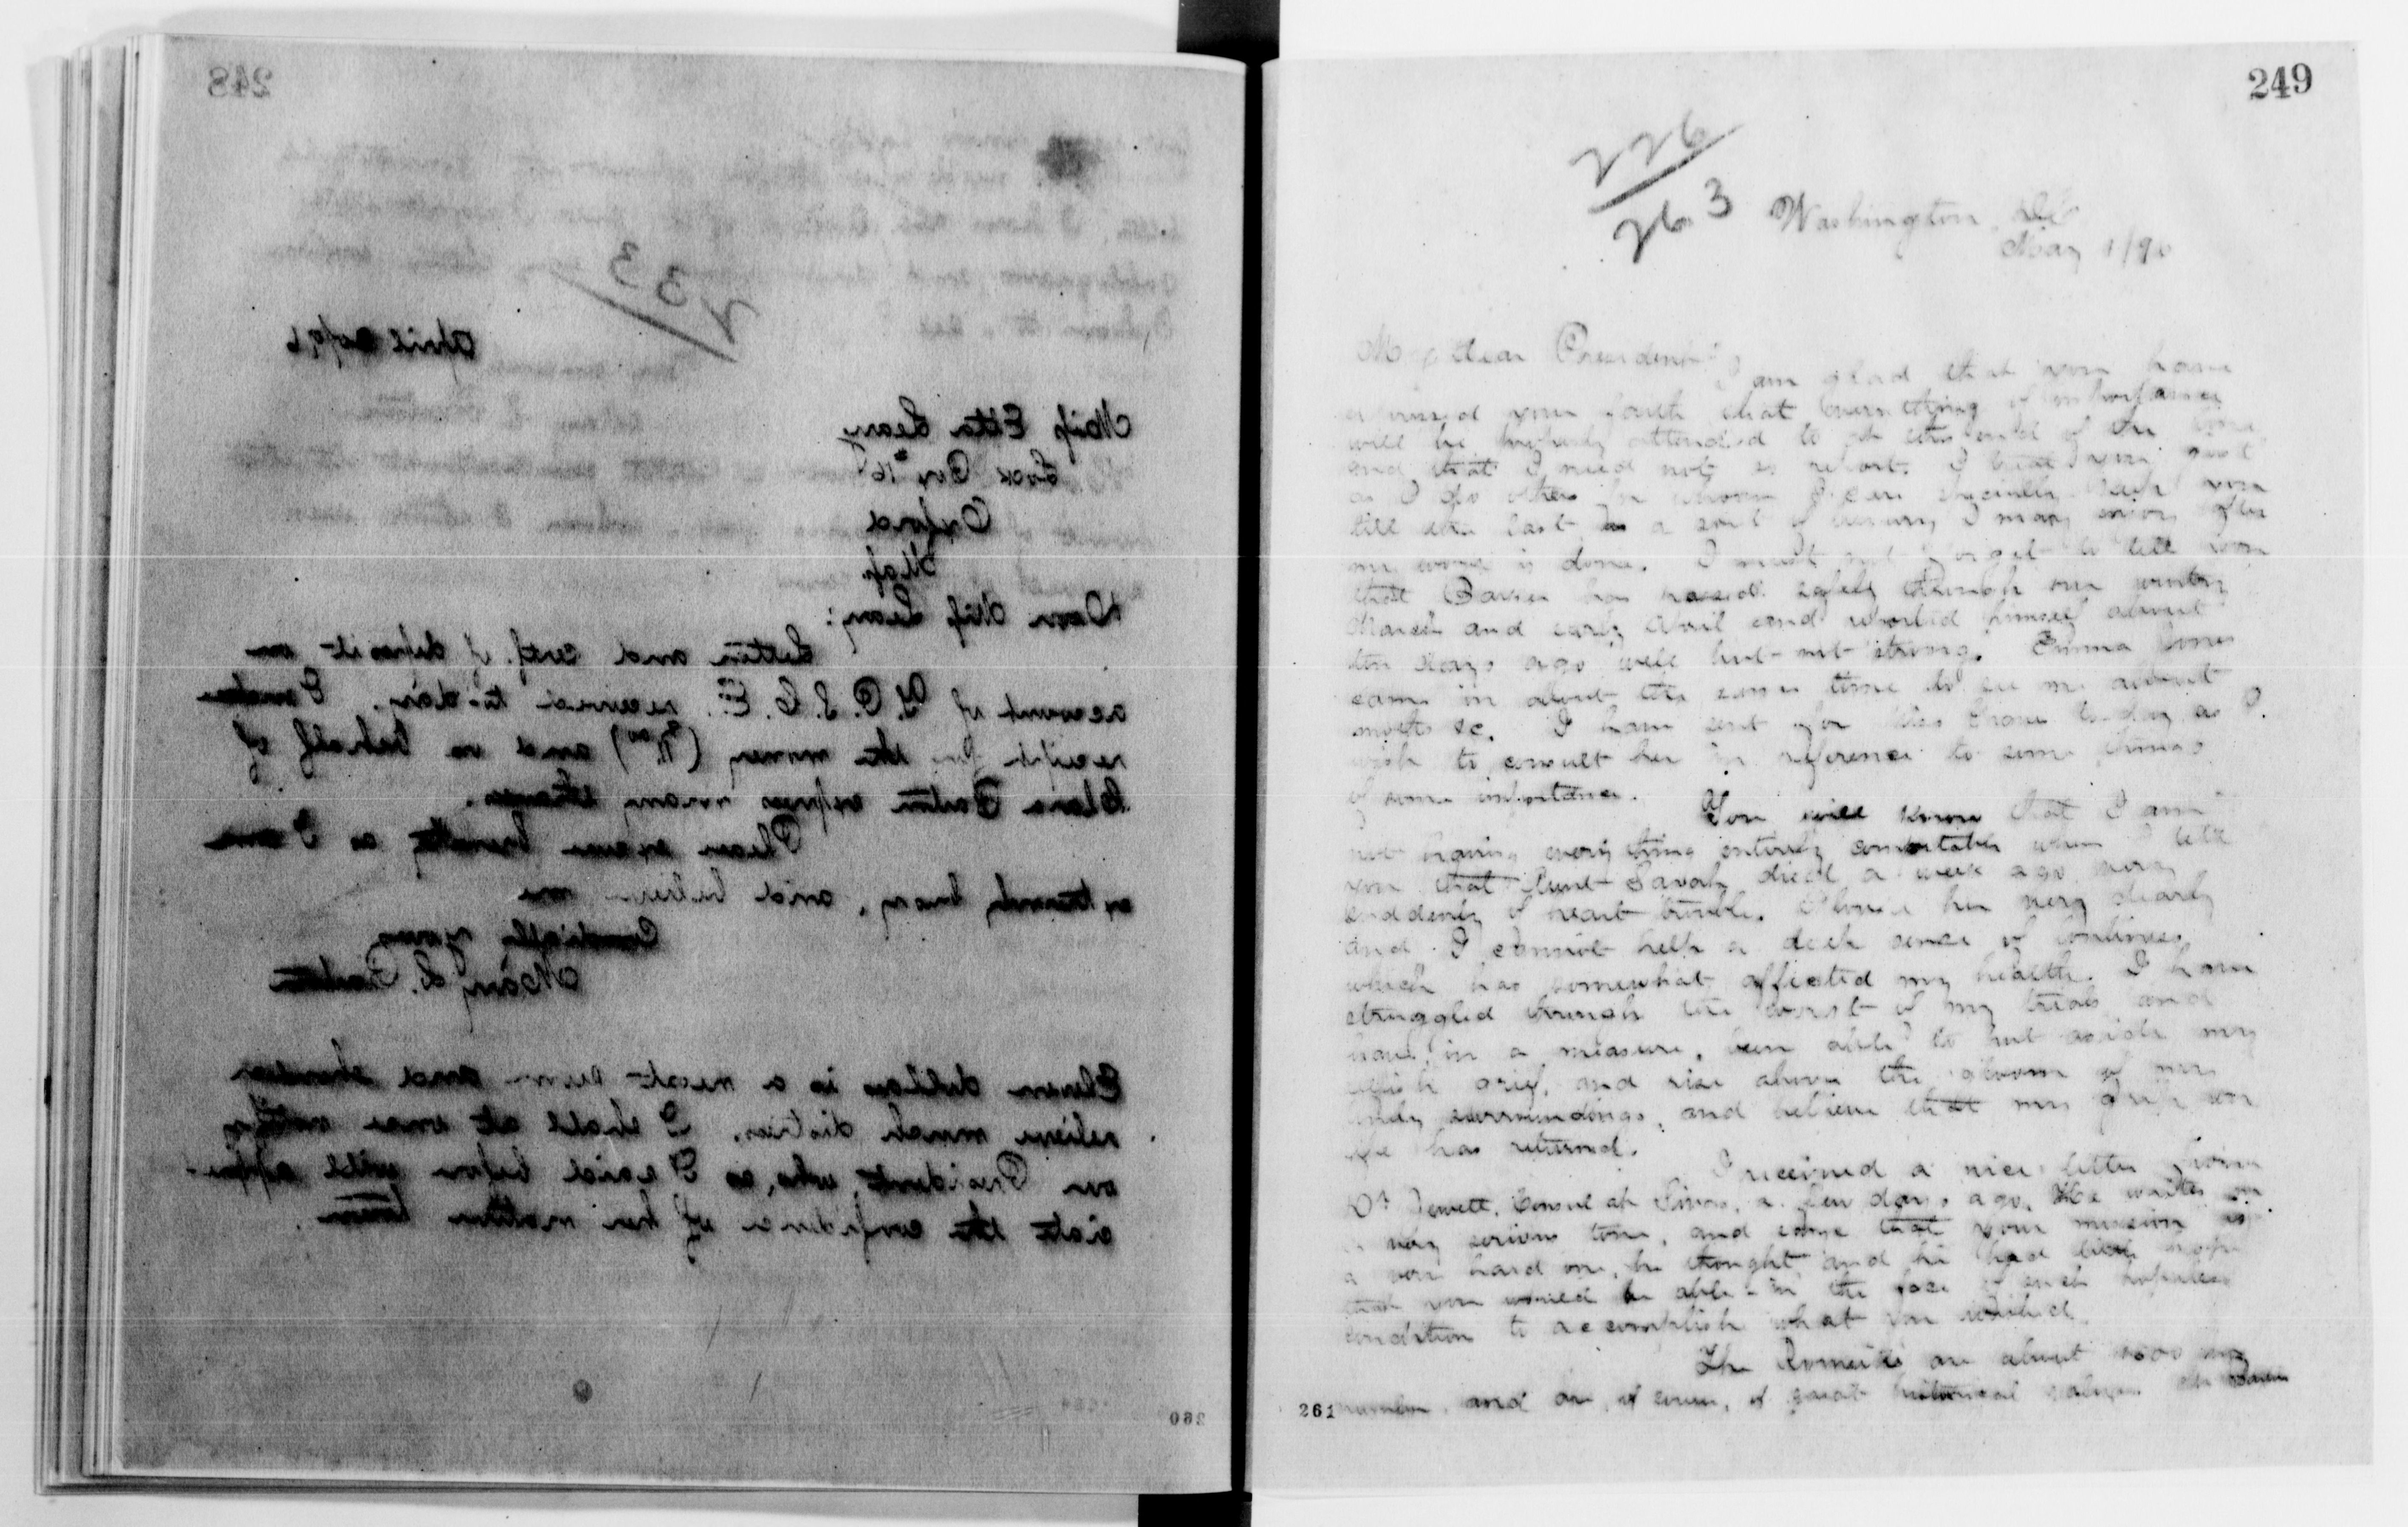 248
233
April 30/96
Miss Etta Leary
Lock Box 16
Oxford
Miss.
Dear Miss Leary:
Letter and cert. of deposit on
account of Y.P.S.C.E. received to-day. I enclose
receipt for the money ($11.00) and in behalf of
Clara Barton express many thanks.
Please excuse brevity as I am
extremely busy, and believe me
Cordially yours
Mary S.
Eleven dollars is a neat sum and should
relieve much distress. I shall at once notify
our President, who, as I said before will appre-
ciate the confidence of her native town.
260
249
226
263
Washington, D.C.
May 1/96
My dear President:
I am glad that you have
expressed your faith that everything of importance
will be properly attended to at this end of the line
and that I need not so report. I treat you just
as I do others for whom I care specially
till the last as a sort of luxury I may enjoy after
my work is done. I must not forget to tell you
that has passed safely through our wintry
March and early April and reported himself about
ten days ago well but not strong. Emma Jones
came in about the same time to see me about
moths &c. I have sent for Miss to-day as I
wish to consult her in reference to some things
of some importance.
You will know that I am
not having everything entirely comfortable when I tell
you that Aunt Sarah died a week ago very
suddenly of heart trouble. I loved her very dearly
and I cannot help a deep sense of loneliness
which has somewhat affected my health. I have
struggled through the worst of my trials and
have, in a measure, been able to put aside my
selfish grief, and rise above the gloom of my
lonely surroundings, and believe that my grip on
life has returned.
I received a nice letter from
Dr Jewett, Consul at Sivas, a few days ago. He writes in
a very serious tone, and says that your mission is
a very hard one, he thought and he had little hope
that you would be able in the face of such hopeless
condition to accomplish what you wished.
The are about
number, and are, of course, of great historical value.
261